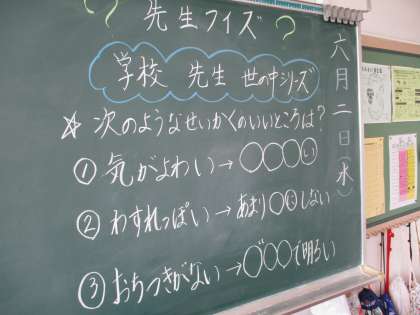 ? 先生クイズ ?
学校 先生 世の中シリーズ
☆ 次のようなせいかくのいいところは?
① 気がよわい→〇〇〇い
② わすれっぽい→あまり〇〇しない
③ おちつきがない→〇〇〇で明るい
六月二日(水)